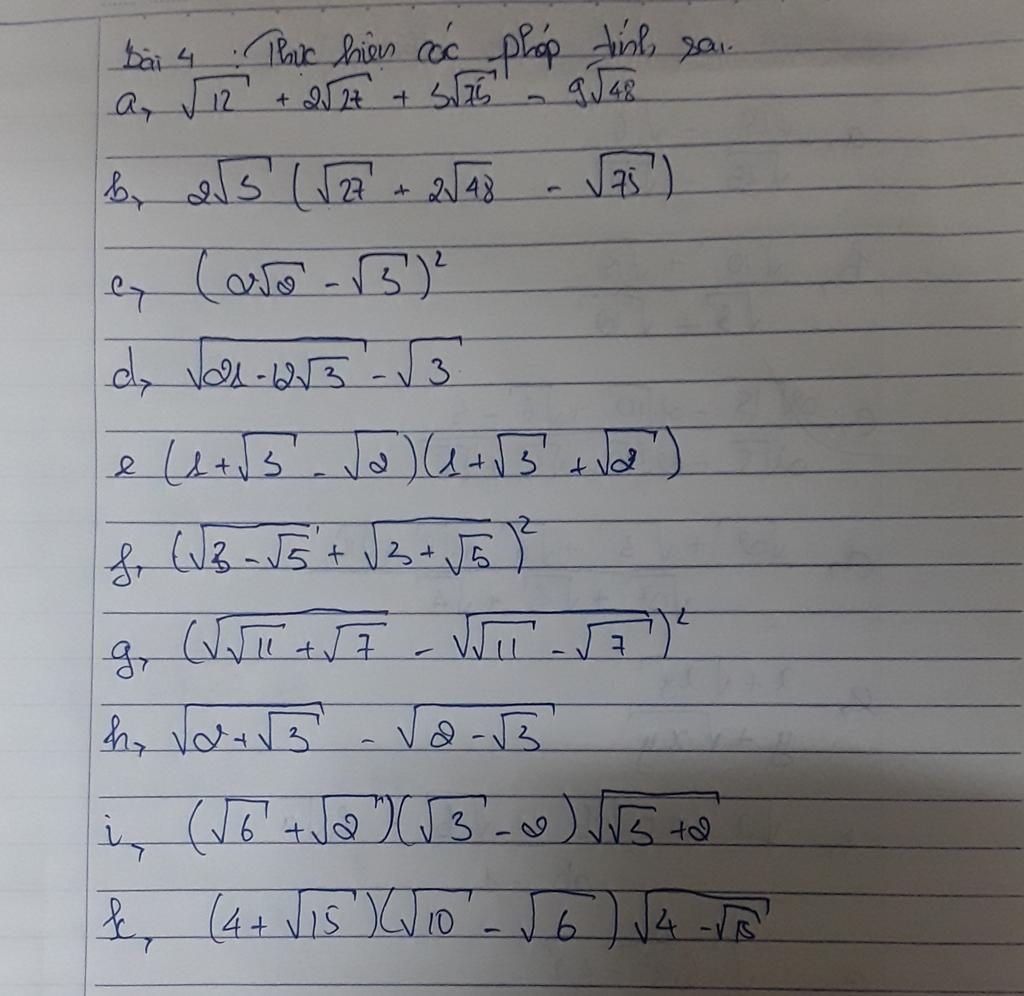 Bài 4 : Thực hiện các phép tính sau.
a, √12 + 2√27 + 3√75 - 9√48
b, 2√3 (√27 + 2√48 - √75)
c, (2√2 - √3)²
d, √(21 - 12√3) - √3
e (1 + √3 - √2)(1 + √3 + √2)
f, (√(3 - √5) + √(3 + √5))²
g, (√(√11 + √7) - √(√11 - √7))²
h, √(2 + √3) - √(2 - √3)
i, (√6 + √2)(√3 - 2)√(√3 + 2)
k, (4 + √15)(√10 - √6)√(4 - √15)